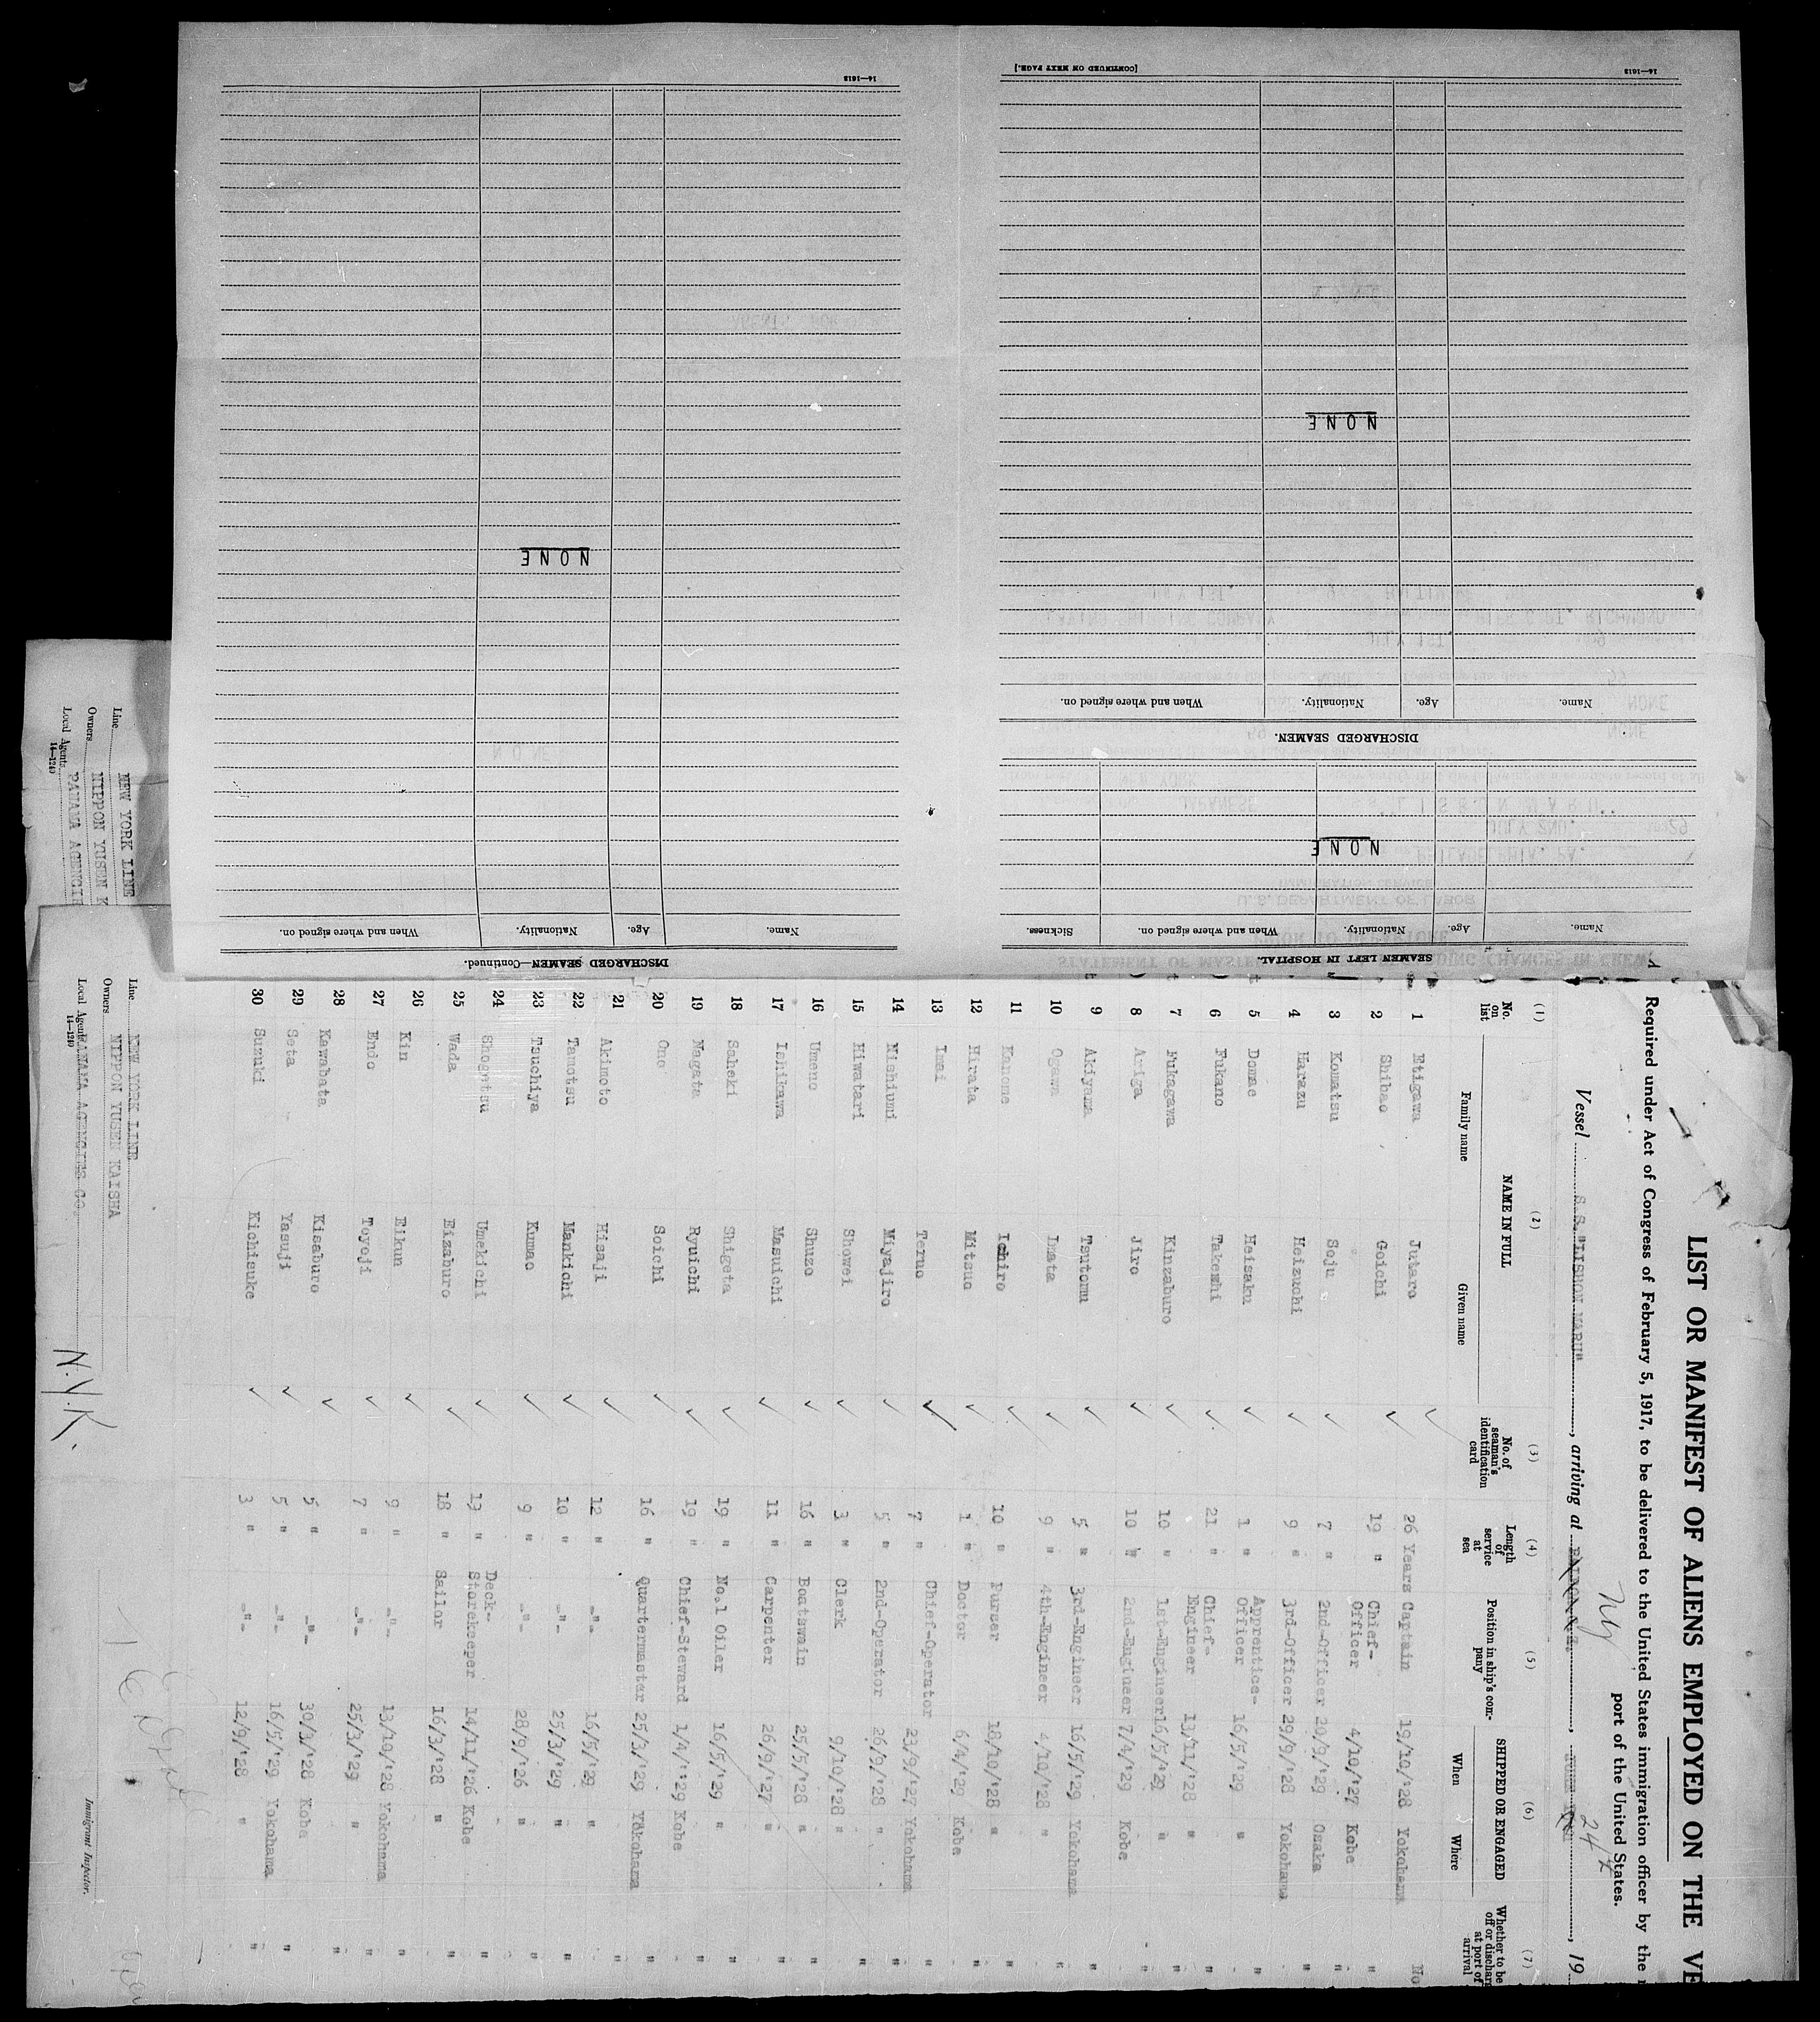 SEAMEN LEFT IN HOSPITAL.
Name. Age. Nationality. When and where signed on. Sickness.
NONE
DISCHARGED SEAMEN.
Name. Age. Nationality. When and where signed on.
NONE
14—1613 [CONTINUED ON NEXT PAGE.]
DISCHARGED SEAMEN—Continued.
Name. Age. Nationality. When and where signed on.
NONE
14—1613
Line NEW YORK LINE
Owners NIPPON YUSEN K
Local Agents PANAMA AGENCIE
14—1240
LIST OR MANIFEST OF ALIENS EMPLOYED ON THE VE
Required under Act of Congress of February 5, 1917, to be delivered to the United States immigration officer by the
port of the United States.
Vessel S.S."LISBON MARU", arriving at NY, 24/, 19
(1) (2) (3) (4) (5) (6) (7)
No. on list NAME IN FULL No. of seaman's identification card Length of service at sea Position in ship's company SHIPPED OR ENGAGED Whether to be off or dischar at port of arrival
Family name Given name When Where
1 Etigawa Jutaro 26 Years Captain 19/10/'28 Yokohama No
2 Shibao Goichi 19 " Chief-Officer 4/10/'27 Kobe "
3 Komatsu Soju 7 " 2nd-Officer 20/9/'29 Osaka "
4 Harazu Heizuchi 9 " 3rd-Officer 29/9/'28 Yokohama "
5 Domae Heisaku 1 " Apprentice-Officer 16/5/'29 " "
6 Fukano Takeshi 21 " Chief-Engineer 13/11/'28 " "
7 Fukagawa Kinzaburo 10 " 1st-Engineer 16/5/'29 " "
8 Ariga Jiro 10 " 2nd-Engineer 7/4/'29 Kobe "
9 Akiyama Tsutomu 5 " 3rd-Engineer 16/5/'29 Yokohama "
10 Ogawa Imata 9 " 4th-Engineer 4/10/'28 " "
11 Kanome Ichiro 10 " Purser 18/10/'28 " "
12 Hirata Mitsuo 1 " Doctor 6/4/'29 Kobe "
13 Imai Teruo 7 " Chief-Operator 23/9/'27 Yokohama "
14 Nishiumi Miyajiro 5 " 2nd-Operator 26/9/'28 " "
15 Hiwatari Showei 3 " Clerk 9/10/'28 " "
16 Umeno Shuzo 16 " Boatswain 25/5/'28 " "
17 Ishikawa Masuichi 11 " Carpenter 26/9/'27 " "
18 Saheki Shigeta 19 " No.1 Oiler 16/5/'29 " "
19 Nagata Ryuichi 19 " Chief-Steward 1/4/'29 Kobe "
20 Ono Soichi 16 " Quartermaster 25/3/'29 Yokohama "
21 Akimoto Hisaji 12 " -"- 16/5/'29 " "
22 Tamotsu Mankichi 10 " -"- 25/3/'29 " "
23 Tsuchiya Kumao 9 " -"- 28/9/'26 " "
24 Shogetsu Umekichi 19 " Deck-Storekeeper 14/11/'26 Kobe "
25 Wada Eizaburo 18 " Sailor 16/3/'28 " "
26 Kin Eikun 9 " -"- 13/10/'28 Yokohama "
27 Endo Toyoji 7 " -"- 25/3/'29 " "
28 Kawabata Kisaburo 5 " -"- 30/3/'28 Kobe "
29 Seta Yasuji 5 " -"- 16/5/'29 Yokohama "
30 Suzuki Kichisuke 3 " -"- 12/9/'28 " "
Line NEW YORK LINE
Owners NIPPON YUSEN KAISHA
Local Agents PANAMA AGENCIES CO.
14—1240
N.Y.K.
Immigrant Inspector.